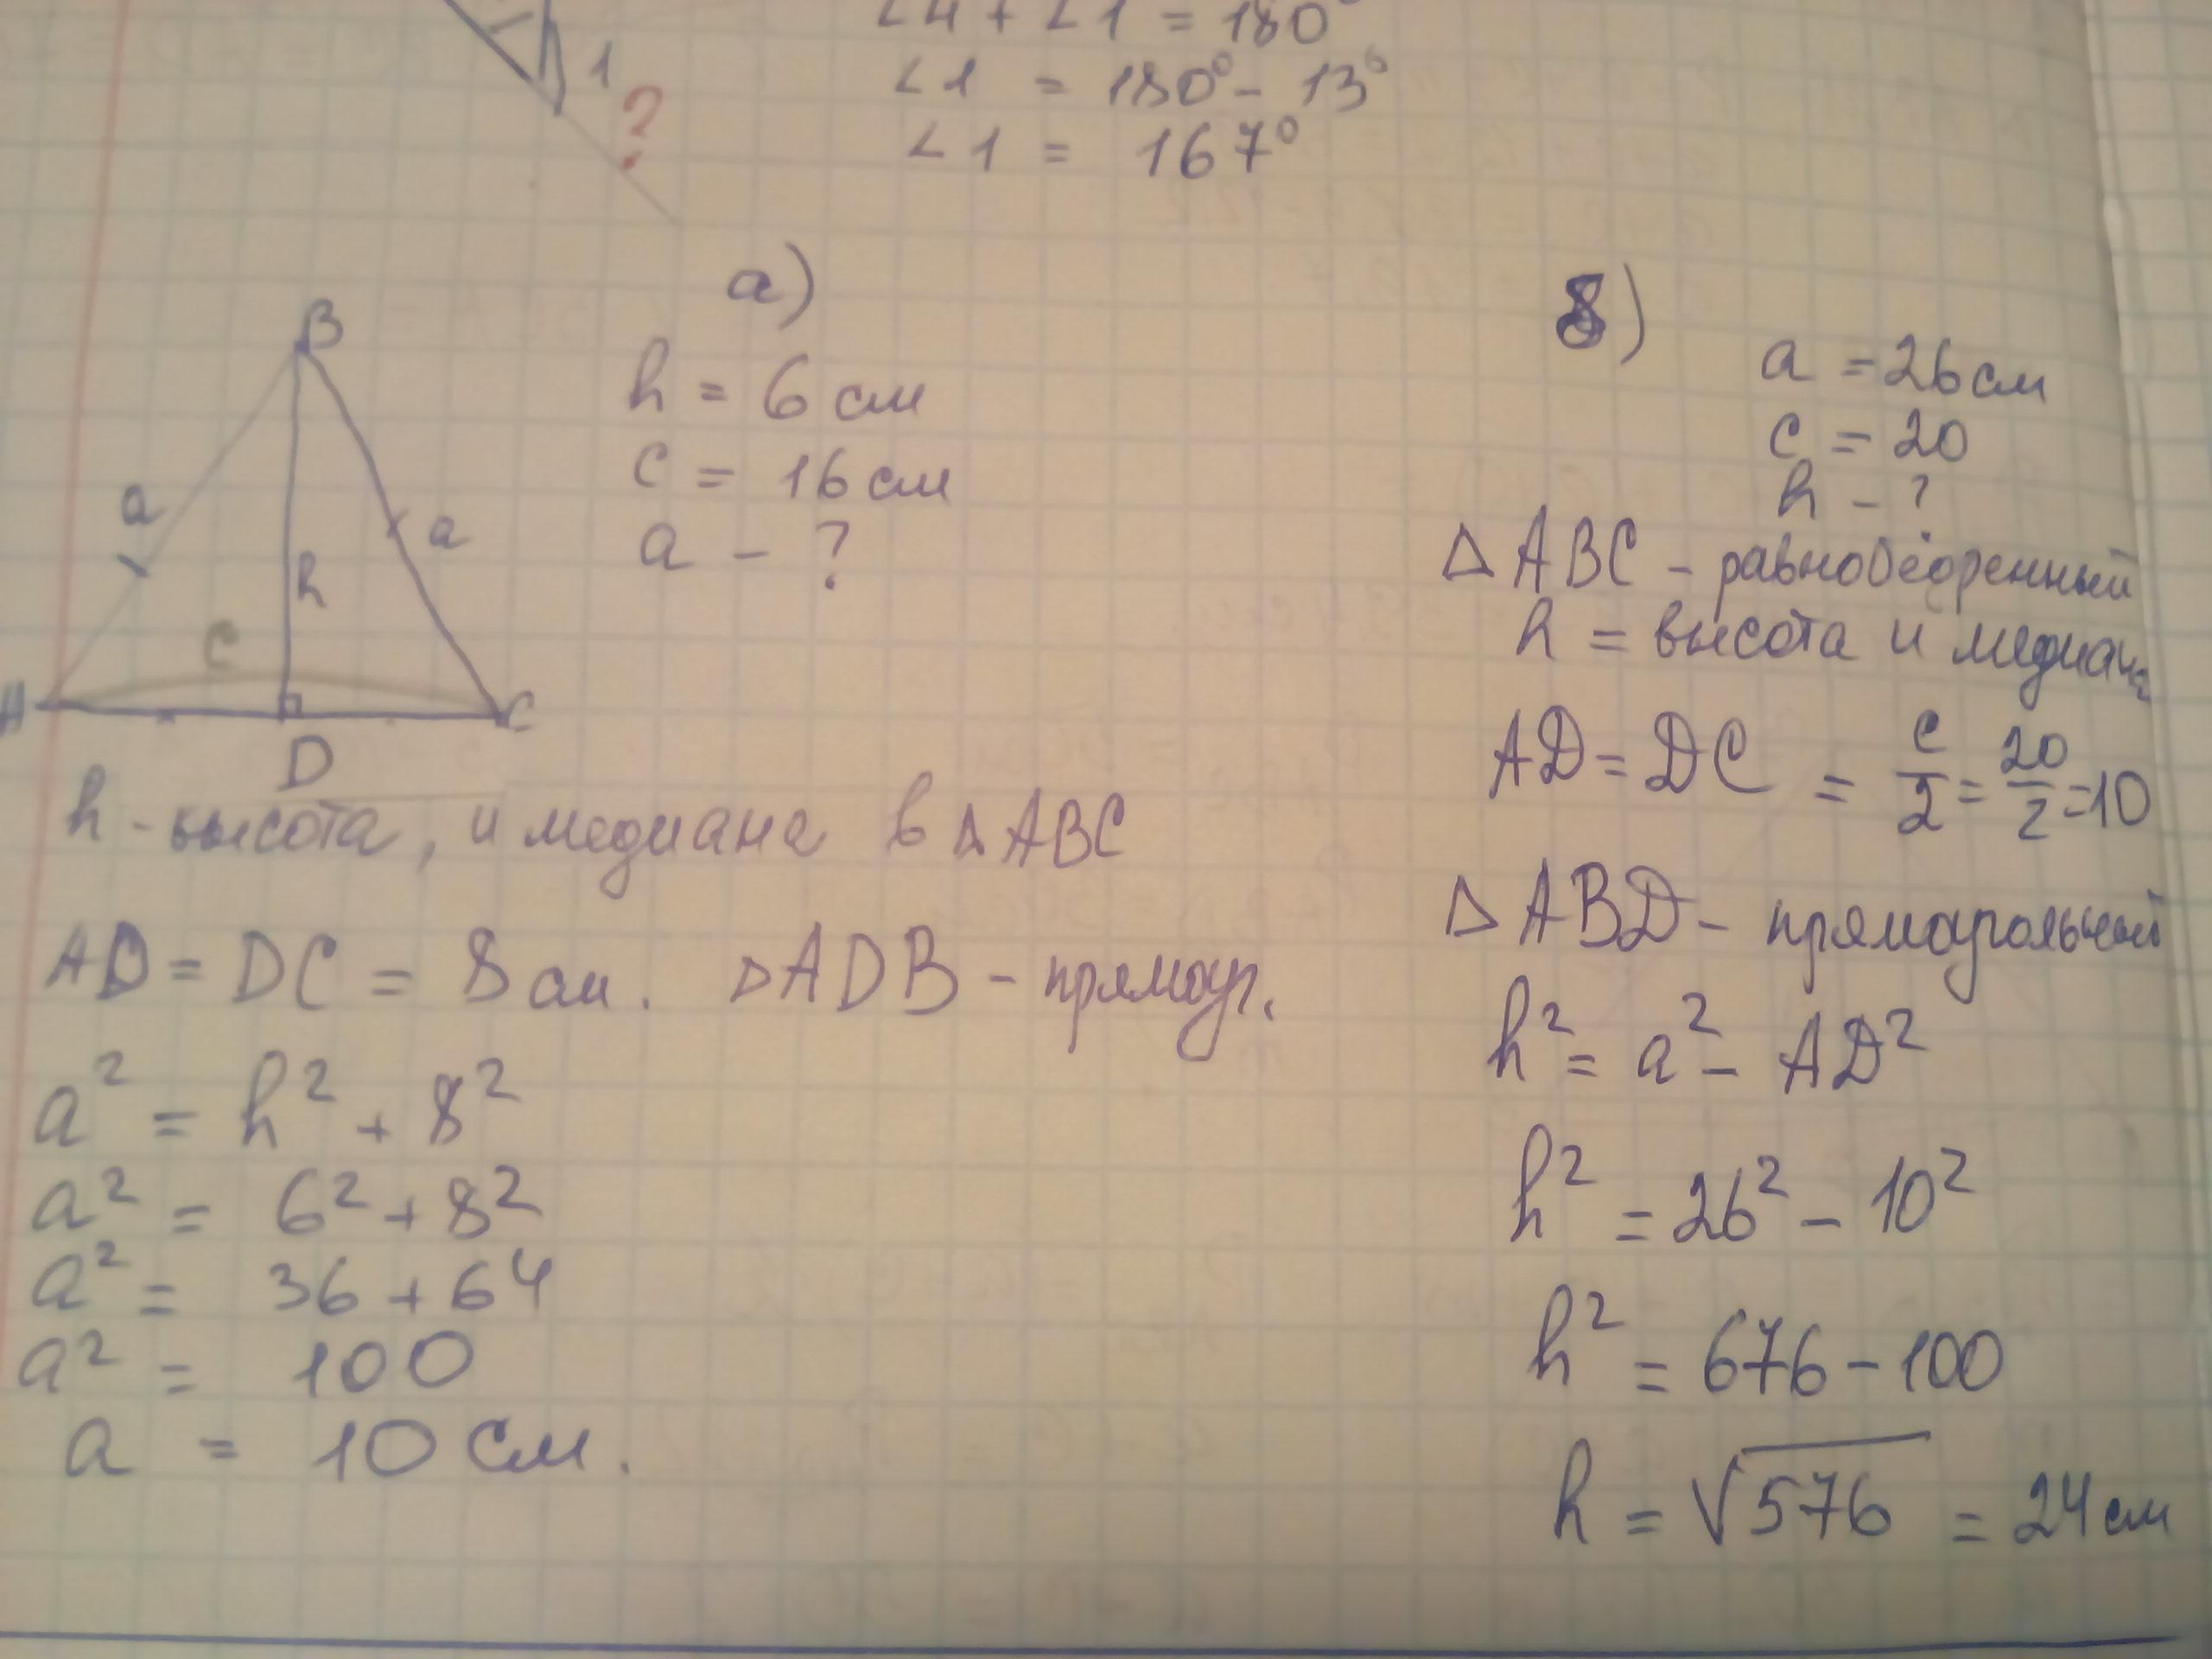 ∠4 + ∠1 = 180°
1 ∠1 = 180° - 13°
? ∠1 = 167°
а)
B
h = 6 см
c = 16 см
a - ?
a
a
h
c
A
C
D
h - высота, и медиана в △ABC
AD = DC = 8 см. △ADB - прямоуг.
a² = h² + 8²
a² = 6² + 8²
a² = 36 + 64
a² = 100
a = 10 см.
б)
a = 26 см
c = 20
h - ?
△ABC - равнобедренный
h = высота и медиана
AD = DC = c/2 = 20/2 = 10
△ABD - прямоугольный
h² = a² - AD²
h² = 26² - 10²
h² = 676 - 100
h = √576 = 24 см